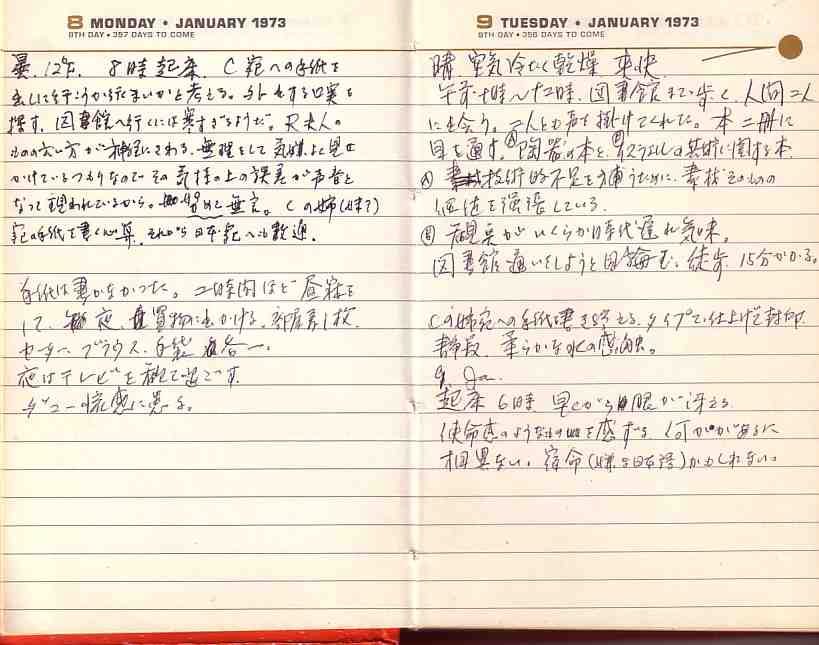 8 MONDAY • JANUARY 1973
8TH DAY • 357 DAYS TO COME
曇、12°F. 8時起床、C宛への手紙を
出しに行こうか行くまいかと考える。外出する口実を
探す。図書館へ行くには寒すぎるようだ。R夫人の
ものの云い方が神経にさわる。無理をして気嫌よく見せ
かけているつもりなのでその気持の上の誤差が声音と
なって現われているから。努めて無言。Cの姉
宛の手紙を書く心算、それから日本宛へも数通。
手紙は書かなかった。二時間ほど昼寝を
して、夜、買物に出かける。部屋着1枚、
セーター、ブラウス、手袋各一。
夜はテレビを観て過ごす。
9 TUESDAY • JANUARY 1973
9TH DAY • 356 DAYS TO COME
晴 空気冷たく乾燥 爽快
午前十時〜十二時、図書館まで歩く、人間二人
にも会う。二人とも声を掛けてくれた。本二冊に
目を通す。Ⓐ陶器の本と、Ⓑイスラエルの美術に関する本.
Ⓐ 技術的不足を補うために、素材そのもの
価値を強張している.
Ⓑ がいくらか時代遅れ気味。
図書館通いをしようと目論む。徒歩、15分かかる。
Cの姉宛への手紙書き終える、タイプで仕上げて封印。
静寂、柔らかな水の感触。
9. Ja.
起床 6時 早くから眼が冴える
使命感のようなものを感ずる 何かがあるに
相異ない。宿命(嫌な日本語)かもしれない。